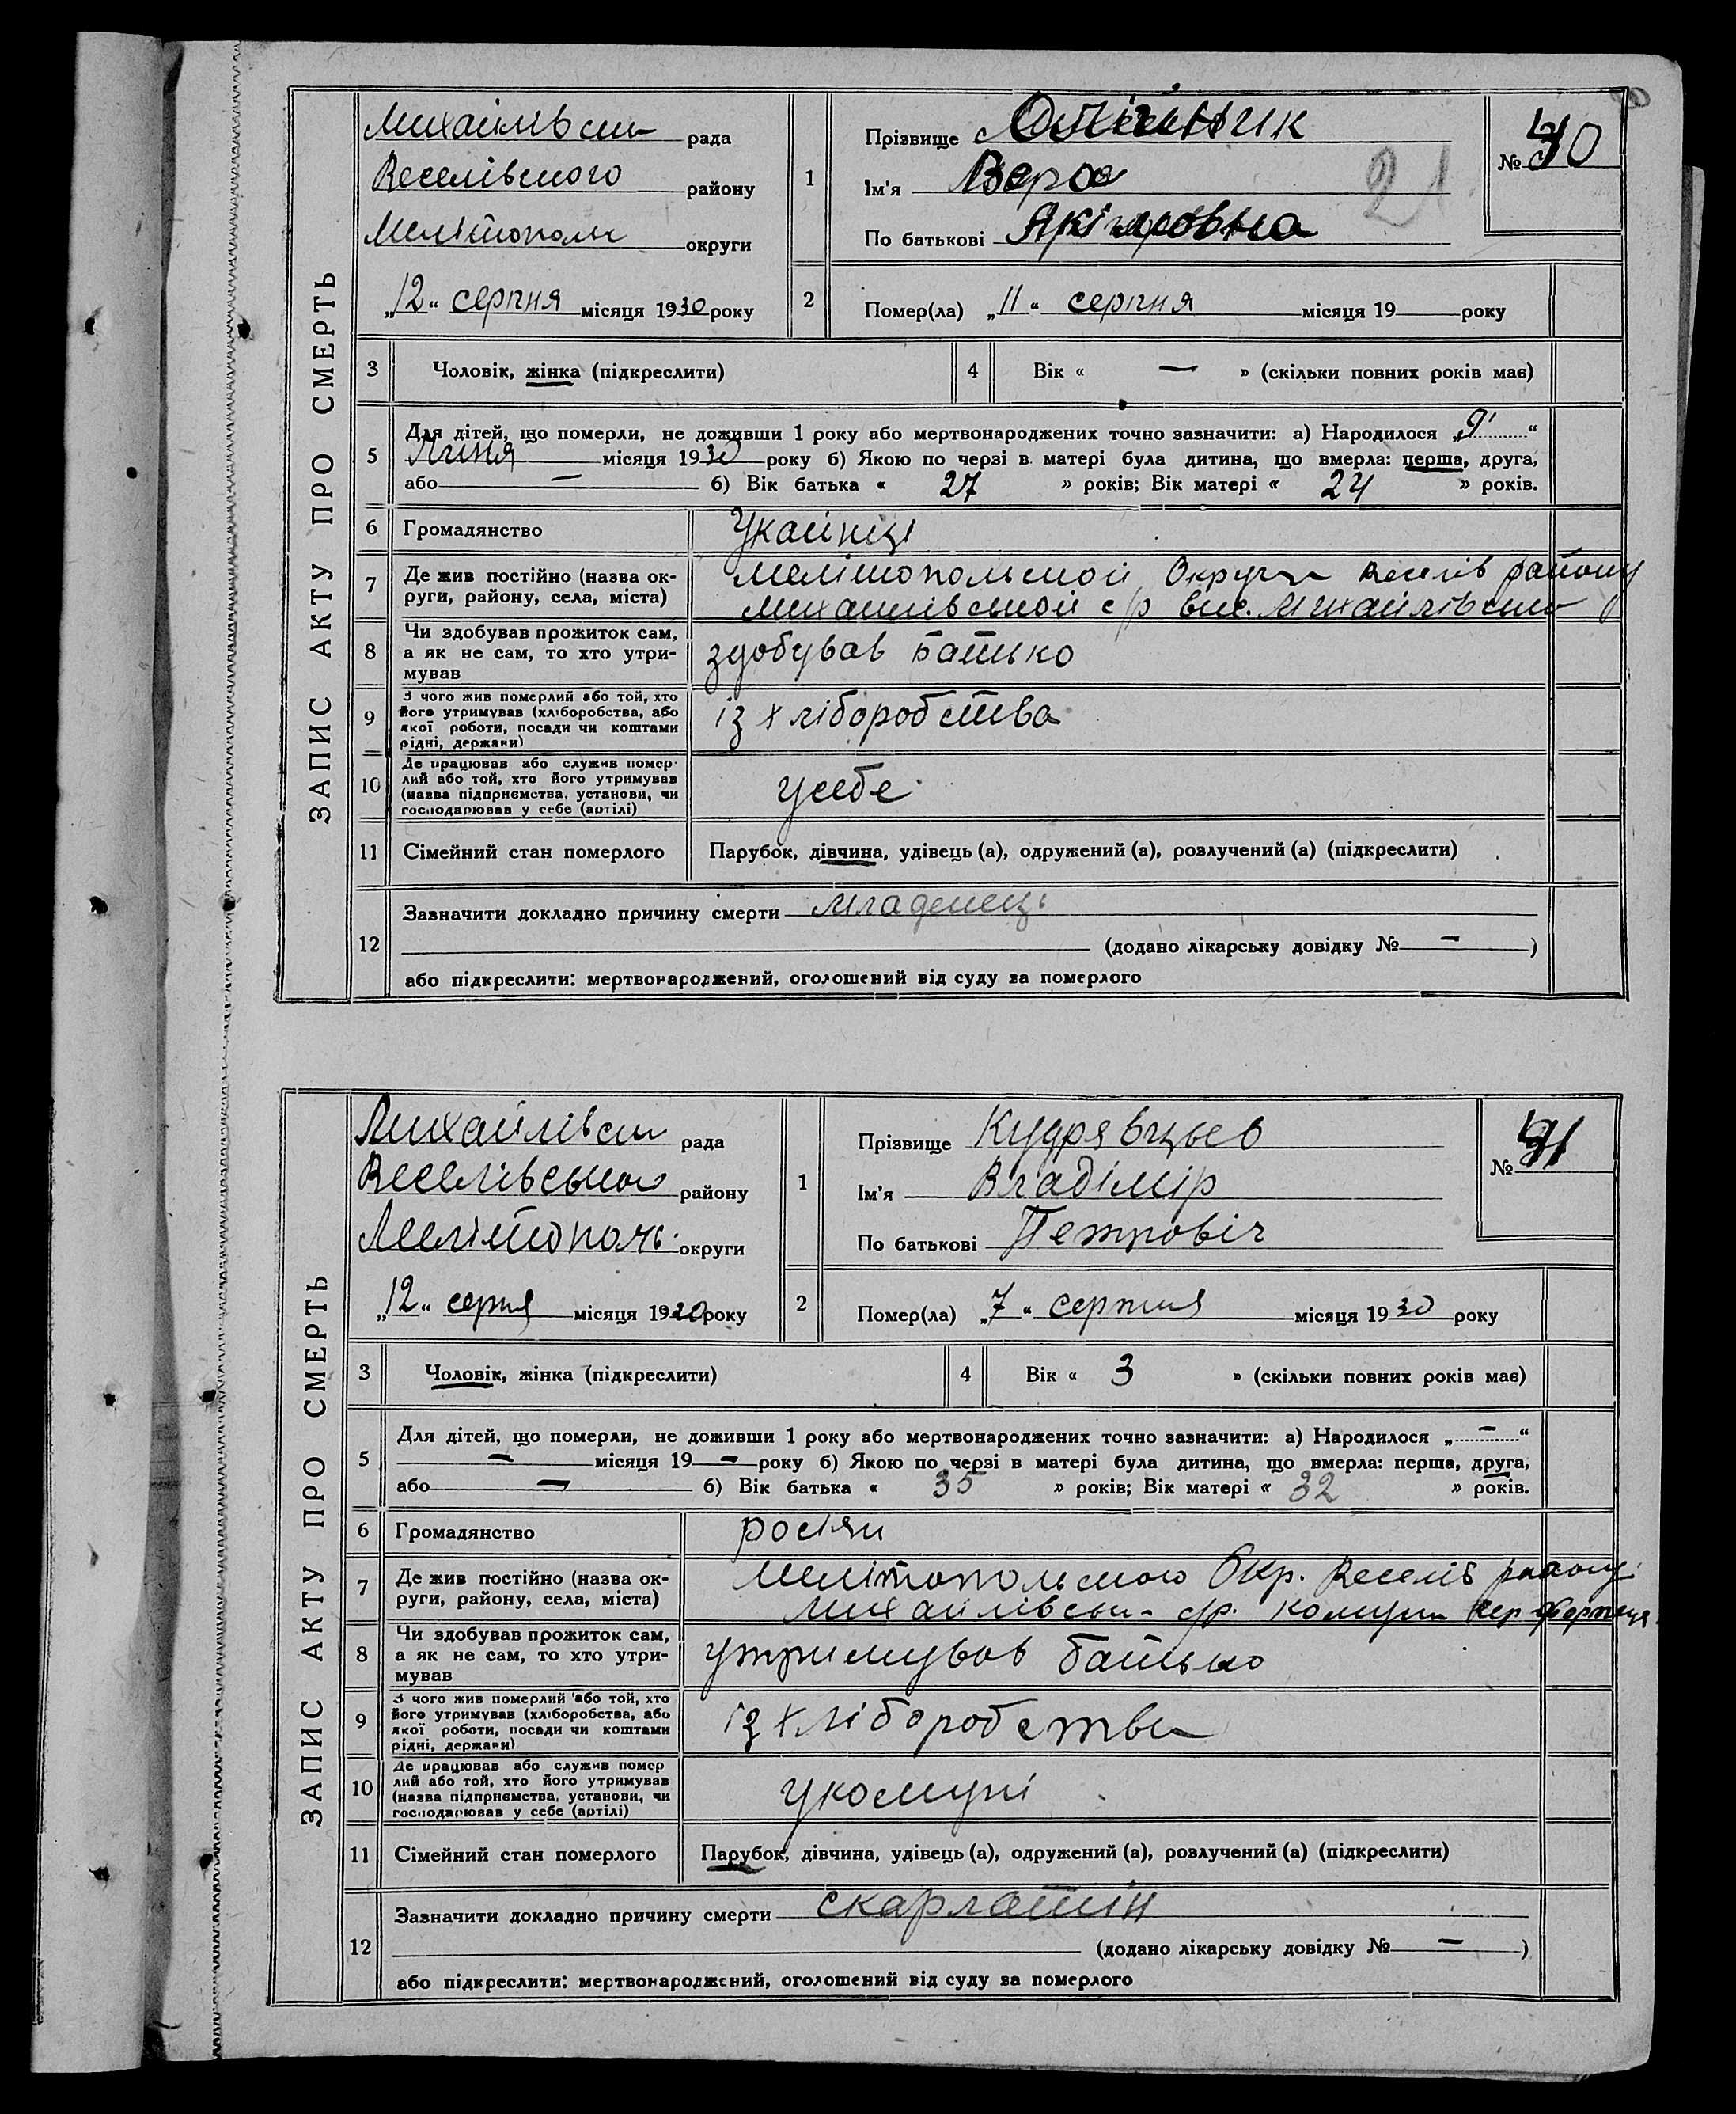 ЗАПИС АКТУ ПРО СМЕРТЬ
Михайлівськ рада
Веселівського району
Мелітополь округи
„12“ серпня місяця 1930 року
1 Прізвище Олійник
Ім'я Вера
По батькові Якімовна
№ 40
21
2 Помер(ла) „11“ серпня місяця 19 року
3 Чоловік, жінка (підкреслити)
4 Вік « — » (скільки повних років має)
5 Для дітей, що померли, не доживши 1 року або мертвонароджених точно зазначити: а) Народилося „9“
Липня місяця 1930 року б) Якою по черзі в матері була дитина, що вмерла: перша, друга,
або — б) Вік батька « 27 » років; Вік матері « 24 » років.
6 Громадянство Укаїнці
7 Де жив постійно (назва ок- Мелітопольської Округи Веселів району
руги, району, села, міста) Михайлівської с/р вис. Михайлівськ
8 Чи здобував прожиток сам,
а як не сам, то хто утри- здобував батько
мував
9 З чого жив померлий або той, хто
його утримував (хліборобства, або із хліборобства
якої роботи, посади чи коштами
рідні, держави)
10 Де працював або служив помер-
лий або той, хто його утримував
(назва підприємства, установи, чи усебе
господарював у себе (артілі)
11 Сімейний стан померлого Парубок, дівчина, удівець (а), одружений (а), розлучений (а) (підкреслити)
12 Зазначити докладно причину смерти младенець
(додано лікарську довідку № — )
або підкреслити: мертвонароджений, оголошений від суду за померлого
ЗАПИС АКТУ ПРО СМЕРТЬ
Михайлівськ рада
Веселівського району
Мелітополь. округи
„12“ серпня місяця 1930 року
1 Прізвище Кудрявцьев
Ім'я Владімір
По батькові Петровіч
№ 41
2 Помер(ла) „7“ серпня місяця 1930 року
3 Чоловік, жінка (підкреслити)
4 Вік « 3 » (скільки повних років має)
5 Для дітей, що померли, не доживши 1 року або мертвонароджених точно зазначити: а) Народилося „—“
— місяця 19— року б) Якою по черзі в матері була дитина, що вмерла: перша, друга,
або — б) Вік батька « 35 » років; Вік матері « 32 » років.
6 Громадянство росіян
7 Де жив постійно (назва ок- Мелітопольського Окр. Веселів району
руги, району, села, міста) Михайлівськ- с/р. комуни
8 Чи здобував прожиток сам,
а як не сам, то хто утри- утримував батько
мував
9 З чого жив померлий або той, хто
його утримував (хліборобства, або із хліборобства
якої роботи, посади чи коштами
рідні, держави)
10 Де працював або служив помер
лий або той, хто його утримував
(назва підприємства, установи, чи укомуні
господарював у себе (артілі)
11 Сімейний стан померлого Парубок, дівчина, удівець (а), одружений (а), розлучений (а) (підкреслити)
12 Зазначити докладно причину смерти скарлатін
(додано лікарську довідку № — )
або підкреслити: мертвонароджений, оголошений від суду за померлого